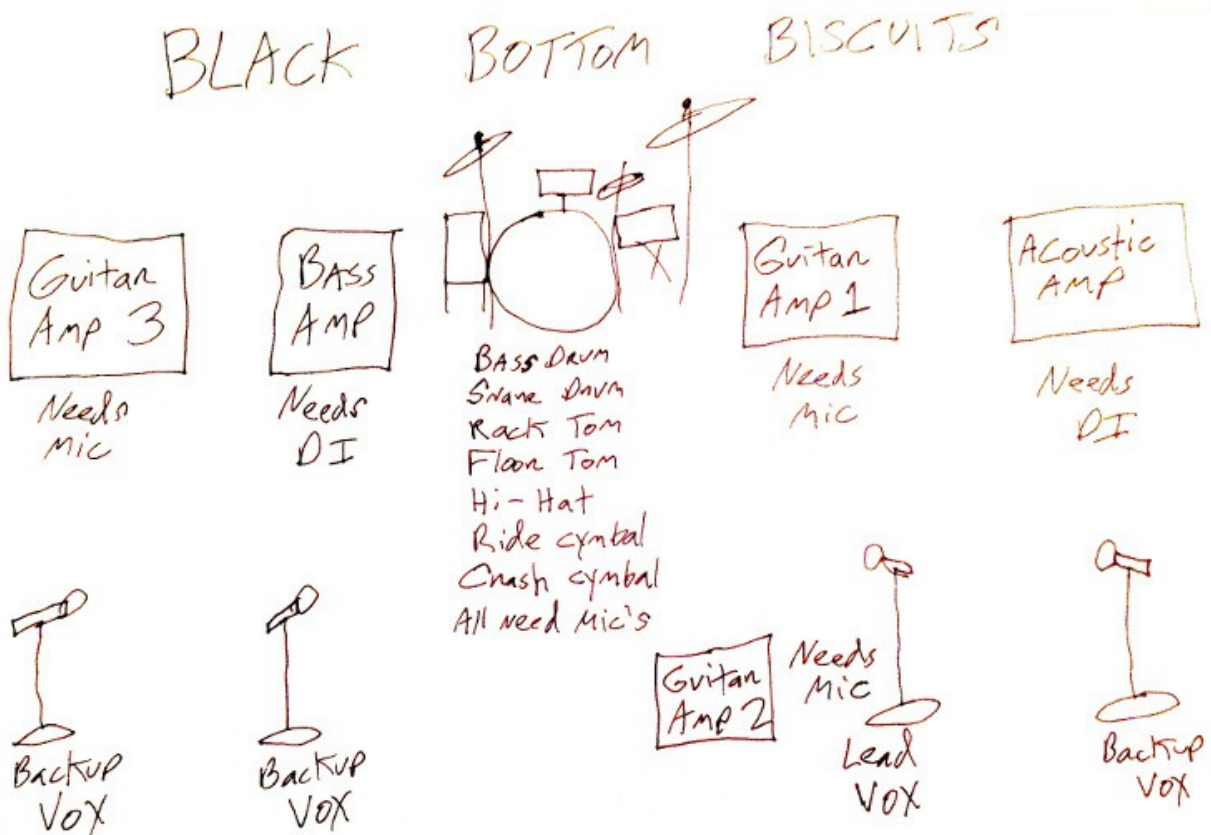 BLACK BOTTOM BISCUITS
Guitar
Amp 3
Needs
Mic
BASS
AMP
Needs
DI
BASS Drum
Snare Drum
Rack Tom
Floor Tom
Hi-Hat
Ride cymbal
Crash cymbal
All need Mic's
Guitar
Amp 1
Needs
Mic
Acoustic
AMP
Needs
DI
Backup
VOX
Backup
VOX
Guitar
Amp 2
Needs
Mic
Lead
VOX
Backup
VOX